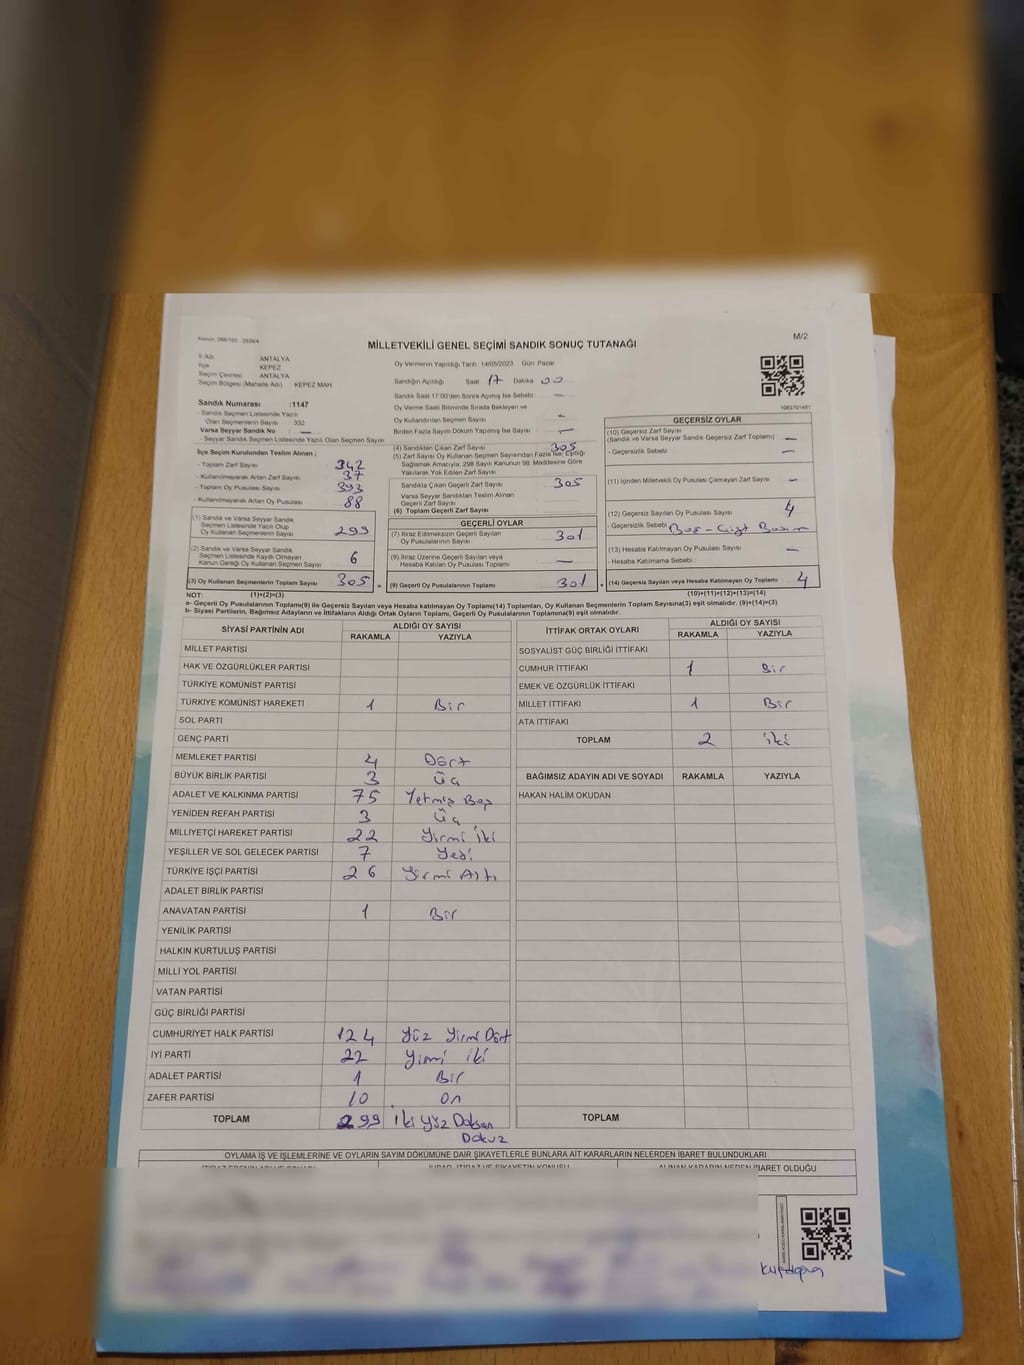 MİLLETVEKİLİ GENEL SEÇİMİ SANDIK SONUÇ TUTANAĞI
M/2
İl Adı ANTALYA
İlçe KEPEZ
Seçim Çevresi ANTALYA
Seçim Bölgesi (Mahalle Adı) KEPEZ MAH.
Sandık Numarası :1147
- Sandık Seçmen Listesinde Yazılı
Olan Seçmenlerin Sayısı 332
Varsa Seyyar Sandık No : —
- Seyyar Sandık Seçmen Listesinde Yazılı Olan Seçmen Sayısı
İlçe Seçim Kurulundan Teslim Alınan ;
- Toplam Zarf Sayısı 342
- Kullanılmayarak Artan Zarf Sayısı 37
- Toplam Oy Pusulası Sayısı 393
- Kullanılmayarak Artan Oy Pusulası 88
(1) Sandık ve Varsa Seyyar Sandık
Seçmen Listesinde Yazılı Olup
Oy Kullanan Seçmenlerin Sayısı 299
(2) Sandık ve Varsa Seyyar Sandık
Seçmen Listesinde Kaydı Olmayan
Kanun Gereği Oy Kullanan Seçmen Sayısı 6
(3) Oy Kullanan Seçmenlerin Toplam Sayısı 305
Oy Vermenin Yapıldığı Tarih :14/05/2023 Gün Pazar
Sandığın Açıldığı Saat 17 Dakika 00
Sandık Saat 17:00'den Sonra Açılmış İse Sebebi : —
Oy Verme Saati Bitiminde Sırada Bekleyen ve
Oy Kullandırılan Seçmen Sayısı —
Birden Fazla Sayım Döküm Yapılmış İse Sayısı —
(4) Sandıktan Çıkan Zarf Sayısı 305
(5) Zarf Sayısı Oy Kullanan Seçmen Sayısından Fazla İse; Eşitliği
Sağlamak Amacıyla, 298 Sayılı Kanunun 98. Maddesine Göre
Yakılarak Yok Edilen Zarf Sayısı
Sandıkta Çıkan Geçerli Zarf Sayısı 305
Varsa Seyyar Sandıktan Teslim Alınan
Geçerli Zarf Sayısı
(6) Toplam Geçerli Zarf Sayısı
GEÇERLİ OYLAR
(7) İtiraz Edilmeksizin Geçerli Sayılan
Oy Pusulalarının Sayısı 301
(8) İtiraz Üzerine Geçerli Sayılan veya
Hesaba Katılan Oy Pusulası Toplamı —
= (9) Geçerli Oy Pusulalarının Toplamı 301
1083701491
GEÇERSİZ OYLAR
(10) Geçersiz Zarf Sayısı
(Sandık ve Varsa Seyyar Sandık Geçersiz Zarf Toplamı) —
- Geçersizlik Sebebi : —
(11) İçinden Milletvekili Oy Pusulası Çıkmayan Zarf Sayısı —
(12) Geçersiz Sayılan Oy Pusulası Sayısı 4
- Geçersizlik Sebebi : Boş - Çift Basım
(13) Hesaba Katılmayan Oy Pusulası Sayısı —
- Hesaba Katılmama Sebebi :
+ (14) Geçersiz Sayılan veya Hesaba Katılmayan Oy Toplamı 4
NOT: (1)+(2)=(3) (10)+(11)+(12)+(13)=(14)
a- Geçerli Oy Pusulalarının Toplamı(9) ile Geçersiz Sayılan veya Hesaba katılmayan Oy Toplamı(14) Toplamları, Oy Kullanan Seçmenlerin Toplam Sayısına(3) eşit olmalıdır. (9)+(14)=(3)
b- Siyasi Partilerin, Bağımsız Adayların ve İttifakların Aldığı Ortak Oyların Toplamı, Geçerli Oy Pusulalarının Toplamına(9) eşit olmalıdır.
SİYASİ PARTİNİN ADI ALDIĞI OY SAYISI
RAKAMLA YAZIYLA
MİLLET PARTİSİ
HAK VE ÖZGÜRLÜKLER PARTİSİ
TÜRKİYE KOMÜNİST PARTİSİ
TÜRKİYE KOMÜNİST HAREKETİ 1 Bir
SOL PARTİ
GENÇ PARTİ
MEMLEKET PARTİSİ 4 Dört
BÜYÜK BİRLİK PARTİSİ 3 Üç
ADALET VE KALKINMA PARTİSİ 75 Yetmiş Beş
YENİDEN REFAH PARTİSİ 3 Üç
MİLLİYETÇİ HAREKET PARTİSİ 22 Yirmi İki
YEŞİLLER VE SOL GELECEK PARTİSİ 7 Yedi
TÜRKİYE İŞÇİ PARTİSİ 26 Yirmi Altı
ADALET BİRLİK PARTİSİ
ANAVATAN PARTİSİ 1 Bir
YENİLİK PARTİSİ
HALKIN KURTULUŞ PARTİSİ
MİLLİ YOL PARTİSİ
VATAN PARTİSİ
GÜÇ BİRLİĞİ PARTİSİ
CUMHURİYET HALK PARTİSİ 124 Yüz Yirmi Dört
İYİ PARTİ 22 Yirmi iki
ADALET PARTİSİ 1 Bir
ZAFER PARTİSİ 10 On
TOPLAM 299 İki Yüz Doksan
Dokuz
İTTİFAK ORTAK OYLARI ALDIĞI OY SAYISI
RAKAMLA YAZIYLA
SOSYALİST GÜÇ BİRLİĞİ İTTİFAKI
CUMHUR İTTİFAKI 1 Bir
EMEK VE ÖZGÜRLÜK İTTİFAKI
MİLLET İTTİFAKI 1 Bir
ATA İTTİFAKI
TOPLAM 2 iki
BAĞIMSIZ ADAYIN ADI VE SOYADI RAKAMLA YAZIYLA
HAKAN HALİM OKUDAN
TOPLAM
OYLAMA İŞ VE İŞLEMLERİNE VE OYLARIN SAYIM DÖKÜMÜNE DAİR ŞİKAYETLERLE BUNLARA AİT KARARLARIN NELERDEN İBARET BULUNDUKLARI
ALINAN KARARIN NEDEN İBARET OLDUĞU